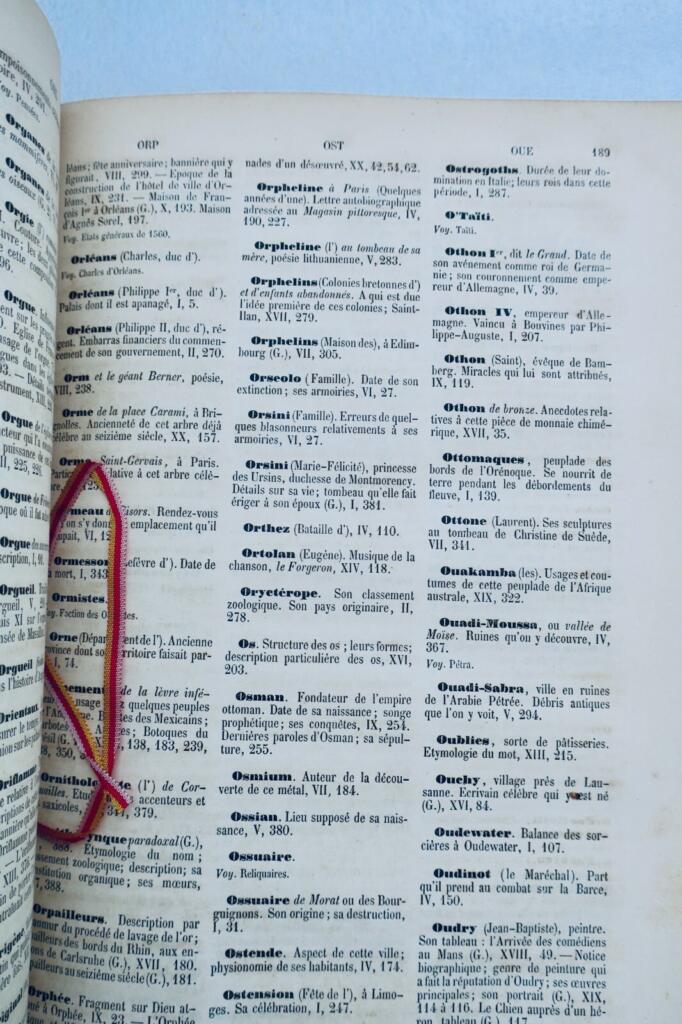 ORP
OST
OUE
189
léans; fête anniversaire; bannière qui y
figurait, VIII, 299. — Epoque de la
construction de l'hôtel de ville d'Or-
léans, IX, 231. — Maison de Fran-
çois Ier à Orléans (G.), X, 193. Maison
d'Agnès Sorel, 197.
Voy. Etats généraux de 1560.
Orléans (Charles, duc d').
Voy. Charles d'Orléans.
Orléans (Philippe Ier, duc d').
Palais dont il est apanagé, I, 5.
Orléans (Philippe II, duc d'), ré-
gent. Embarras financiers du commen-
cement de son gouvernement, II, 270.
Orm et le géant Berner, poésie,
VIII, 238.
Orme de la place Carami, à Bri-
gnolles. Ancienneté de cet arbre déjà
célèbre au seizième siècle, XX, 157.
Orme Saint-Gervais, à Paris.
relative à cet arbre célè-
Rendez-vous
emplacement qu'il
Ormesson (Lefèvre d'). Date de
sa mort, I, 343
Ormistes.
Voy. Faction des
Orne (Départ de l'). Ancienne
province dont so territoire faisait par-
I, 74.
de la lèvre infé-
usage quelques peuples
des Mexicains;
Botoques du
138, 183, 239,
(l') de Cor-
accenteurs et
saxicoles, 344, 379.
paradoxal (G.),
388. Étymologie du nom;
classement zoologique; description; sa
constitution organique; ses mœurs,
388.
Orpailleurs. Description par
du procédé de lavage de l'or;
orpailleurs des bords du Rhin, aux en-
virons de Carlsruhe (G.), XVII, 180.
Orpailleurs au seizième siècle (G.), 181.
Orphée. Fragment sur Dieu at-
à Orphée, IX, 23. — L'Orphée
nades d'un désœuvré, XX, 42, 54, 62.
Orpheline à Paris (Quelques
années d'une). Lettre autobiographique
adressée au Magasin pittoresque, IV,
190, 227.
Orpheline (l') au tombeau de sa
mère, poésie lithuanienne, V, 283.
Orphelins (Colonies bretonnes d')
et d'enfants abandonnés. A qui est due
l'idée première de ces colonies; Saint-
Ilan, XVII, 279.
Orphelins (Maison des), à Edim-
bourg (G.), VII, 305.
Orseolo (Famille). Date de son
extinction; ses armoiries, VI, 27.
Orsini (Famille). Erreurs de quel-
ques blasonneurs relativement à ses
armoiries, VI, 27.
Orsini (Marie-Félicité), princesse
des Ursins, duchesse de Montmorency.
Détails sur sa vie; tombeau qu'elle fait
ériger à son époux (G.), I, 381.
Orthez (Bataille d'), IV, 110.
Ortolan (Eugène). Musique de la
chanson, le Forgeron, XIV, 118.
Oryctérope. Son classement
zoologique. Son pays originaire, II,
278.
Os. Structure des os; leurs formes;
description particulière des os, XVI,
203.
Osman. Fondateur de l'empire
ottoman. Date de sa naissance; songe
prophétique; ses conquêtes, IX, 254.
Dernières paroles d'Osman; sa sépul-
ture, 255.
Osmium. Auteur de la décou-
verte de ce métal, VII, 184.
Ossian. Lieu supposé de sa nais-
sance, V, 380.
Ossuaire.
Voy. Reliquaires.
Ossuaire de Morat ou des Bour-
guignons. Son origine; sa destruction,
I, 31.
Ostende. Aspect de cette ville;
physionomie de ses habitants, IV, 174.
Ostension (Fête de l'), à Limo-
ges. Sa célébration, I, 247.
Ostrogoths. Durée de leur do-
mination en Italie; leurs rois dans cette
période, I, 287.
O'Taïti.
Voy. Taïti.
Othon Ier, dit le Grand. Date de
son avénement comme roi de Germa-
nie; son couronnement comme empe-
reur d'Allemagne, IV, 39.
Othon IV, empereur d'Alle-
magne. Vaincu à Bouvines par Phi-
lippe-Auguste, I, 207.
Othon (Saint), évêque de Bam-
berg. Miracles qui lui sont attribués,
IX, 119.
Othon de bronze. Anecdotes rela-
tives à cette pièce de monnaie chimé-
rique, XVII, 35.
Ottomaques, peuplade des
bords de l'Orénoque. Se nourrit de
terre pendant les débordements du
fleuve, I, 139.
Ottone (Laurent). Ses sculptures
au tombeau de Christine de Suède,
VII, 341.
Ouakamba (les). Usages et cou-
tumes de cette peuplade de l'Afrique
australe, XIX, 322.
Ouadi-Moussa, ou vallée de
Moïse. Ruines qu'on y découvre, IV,
367.
Voy. Pétra.
Ouadi-Sabra, ville en ruines
de l'Arabie Pétrée. Débris antiques
que l'on y voit, V, 294.
Oublies, sorte de pâtisseries.
Etymologie du mot, XIII, 215.
Ouchy, village près de Lau-
sanne. Ecrivain célèbre qui y est né
(G.), XVI, 84.
Oudewater. Balance des sor-
cières à Oudewater, I, 107.
Oudinot (le Maréchal). Part
qu'il prend au combat sur la Barce,
IV, 150.
Oudry (Jean-Baptiste), peintre.
Son tableau : l'Arrivée des comédiens
au Mans (G.), XVIII, 49. — Notice
biographique; genre de peinture qui
a fait la réputation d'Oudry; ses œuvres
principales; son portrait (G.), XIX,
114 à 116. Le Chien auprès d'un hé-
ron, tableau (G.), 117.